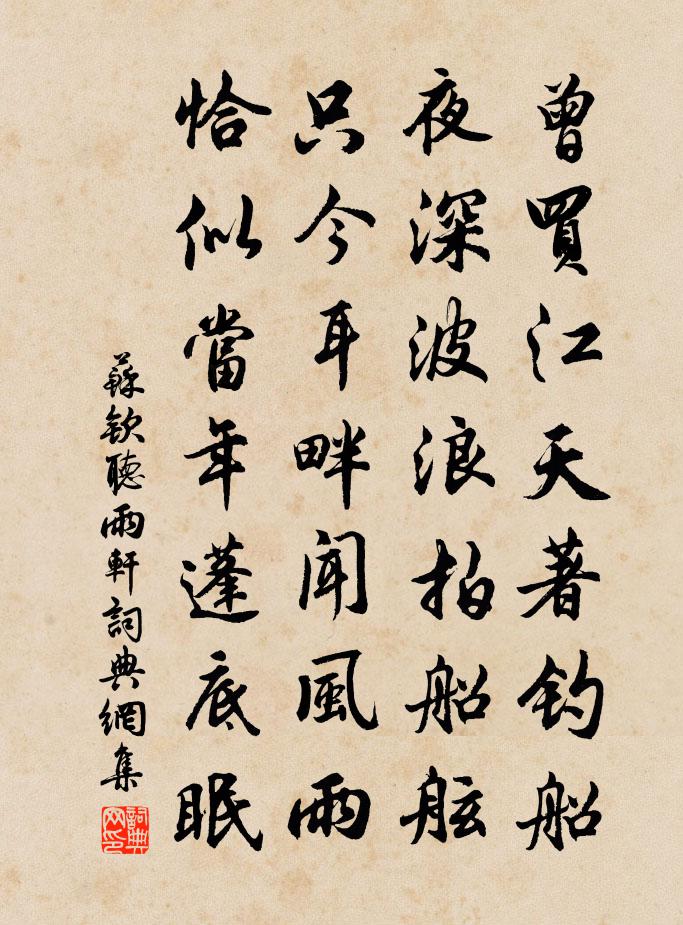 曾買江天著釣船
夜深波浪拍船舷
只今耳畔聞風雨
恰似當年蓬底眠
蘇欽聽雨軒詞典網集
詞典网印